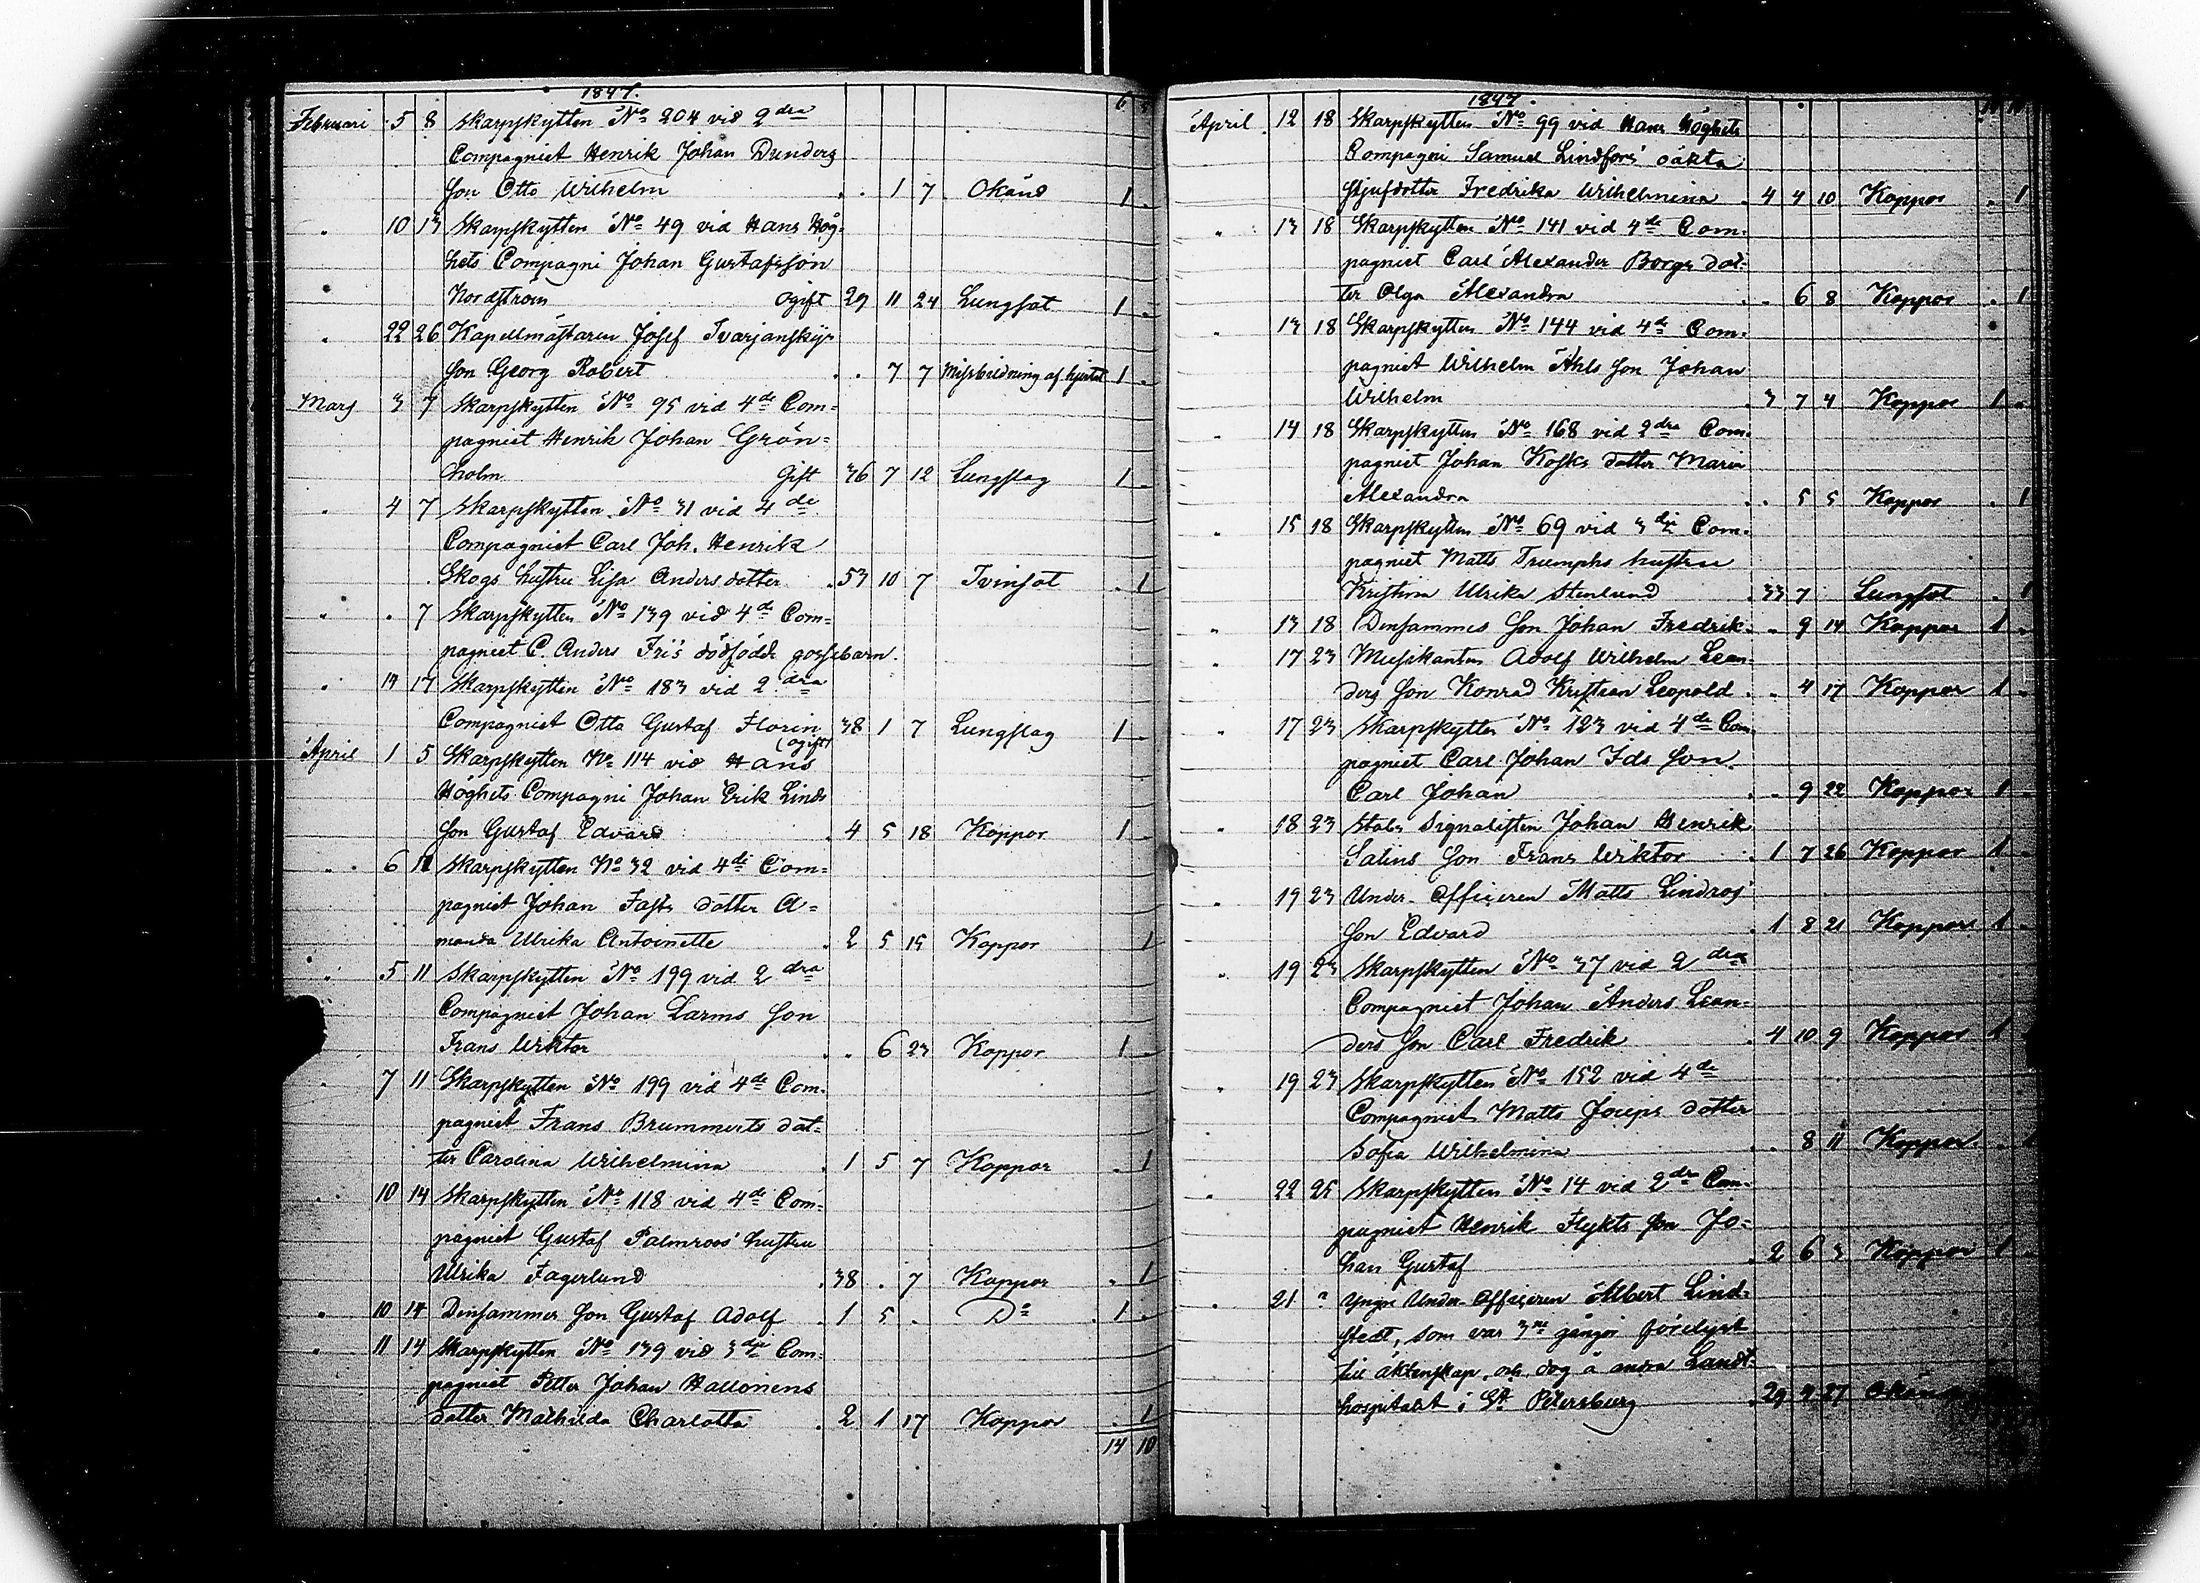 1847. 6
Februari 5 8 Skarpskytten No 204 vid 2dra
Compagniet Henrik Johan Dunders
Son Otto Wilhelm . . 1 7 Okänd 1 .
" 10 13 Skarpskytten No 49 vid Hans Hög-
hets Compagni Johan Gustafsson
Nordström Ogift 29 11 24 Lungsot 1 .
" 22 26 Kapellmästaren Josef Tvarjanskys
Son Georg Robert . . 7 7 Missbildning af hjertat 1 .
Mars 3 7 Skarpskytten No 95 vid 4de Com=
pagniet Henrik Johan Grön=
holm Gift 36 7 12 Lungslag 1 .
" 4 7 Skarpskytten No 31 vid 4de
Compagniet Carl Joh. Henrik
Skogs hustru Lisa Andersdotter . 53 10 7 Tvinsot . 1
" . 7 Skarpskytten No 139 vid 4de Com=
pagniet C. Anders Fri's dödfödde gossebarn.
" 13 17 Skarpskytten No 183 vid 2dra
Compagniet Otto Gustaf Florin 38 1 7 Lungslag 1 .
(ogift)
April 1 5 Skarpskytten No 114 vid Hans
Höghets Compagni Johan Erik Linds
Son Gustaf Edvard . 4 5 18 Koppor 1 .
" 6 11 Skarpskytten No 32 vid 4de Com=
pagniet Johan Fasts dotter A=
manda Ulrika Antoinette . 2 5 15 Koppor 1
" 5 11 Skarpskytten No 199 vid 2dra
Compagniet Johan Larms Son
Frans Wiktor . . 6 23 Koppor 1 .
" 7 11 Skarpskytten No 199 vid 4de Com-
pagniet Frans Brummerts dot-
ter Carolina Wilhelmina . 1 5 7 Koppor . 1
" 10 14 Skarpskytten No 118 vid 4de Com-
pagniet Gustaf Palmroos' hustru
Ulrika Fagerlund . 38 . 7 Koppor . 1
" 10 14 Densammes Son Gustaf Adolf . 1 5 . Do . 1 .
" 11 14 Skarpskytten No 139 vid 3dje Com-
pagniet Petter Johan Hallonens
dotter Mathilda Charlotta . 2 1 17 Koppor . 1
14 10
1847.
April 12 18 Skarpskytten No 99 vid Hans Höghets
Compagni Samuel Lindfors' oäkta
Stjufdotter Fredrika Wilhelmina . 4 4 10 Koppor . 1
" 13 18 Skarpskytten No 141 vid 4de Com-
pagniet Carl Alexander Borgs dot-
ter Olga Alexandra . . 6 8 Koppor . 1
" 13 18 Skarpskytten No 144 vid 4de Com-
pagniet Wilhelm Ahls Son Johan
Wilhelm . 3 7 4 Koppor 1 .
" 14 18 Skarpskytten No 168 vid 2dra Com-
pagniet Johan Kosks dotter Maria
Alexandra . . 5 5 Koppor . 1
" 15 18 Skarpskytten No 69 vid 3dje Com-
pagniet Matts Triumphs hustru
Kristina Ulrika Stenlund . 33 7 Lungsot . 1
" 13 18 Densammes Son Johan Fredrik . . 9 14 Koppor 1 .
" 17 23 Musikanten Adolf Wilhelm Lean-
ders Son Konrad Kristian Leopold . . 4 17 Koppor 1 .
" 17 23 Skarpskytten No 123 vid 4de Com-
pagniet Carl Johan Ids Son
Carl Johan . . 9 22 Koppor 1 .
" 18 23 Stabs Signalisten Johan Henrik
Salins Son Frans Wiktor . 1 7 26 Koppor 1 .
" 19 23 Under-Officeren Matts Lindros'
Son Edvard . 1 8 21 Koppor 1 .
" 19 23 Skarpskytten No 37 vid 2dra
Compagniet Johan Anders Lean-
ders Son Carl Fredrik . 4 10 9 Koppor 1
" 19 23 Skarpskytten No 152 vid 4de
Compagniet Matts Joseps dotter
Sofia Wilhelmina . . 8 11 Koppor .
" 22 25 Skarpskytten No 14 vid 2dra Com-
pagniet Henrik Flykts Son Jo-
han Gustaf . 2 6 3 Koppor 1 .
" 21 ? Yngre Under-Officeren Albert Lind-
stedt, som var 3ne gånger förelyst
till äktenskap, och dog å andra Landt-
hospitalet i St Petersburg . 29 27 Okänd